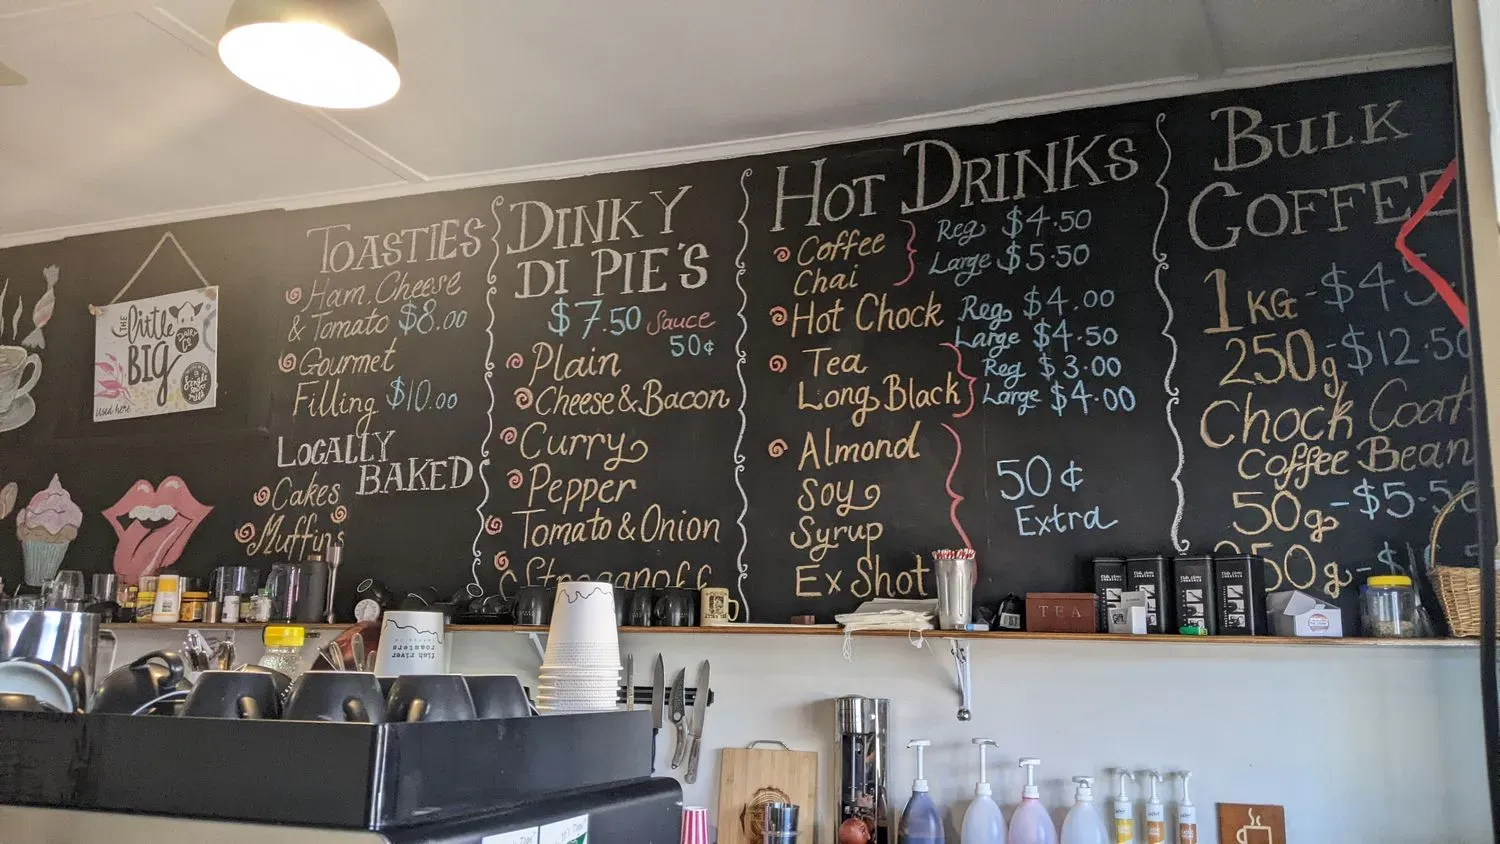 THE
little
BIG
DAIRY
CO
Single
Used here
TOASTIES
Ham, Cheese
& Tomato $8.00
Gourmet
Filling $10.00
LOCALLY
BAKED
Cakes
Muffins
DINKY
DI PIE'S
$7.50 Sauce
50¢
Plain
Cheese & Bacon
Curry
Pepper
Tomato & Onion
Stroganoff
HOT DRINKS
Coffee Reg $4.50
Chai Large $5.50
Hot Chock Reg $4.00
Large $4.50
Tea Reg $3.00
Long Black Large $4.00
Almond
Soy
Syrup
Ex Shot
50¢
Extra
BULK
COFFEE
1KG-$45.
250g-$12.50
Chock Coat
Coffee Bean
50g-$5.50
250g-$
TEA
fish river
roasters